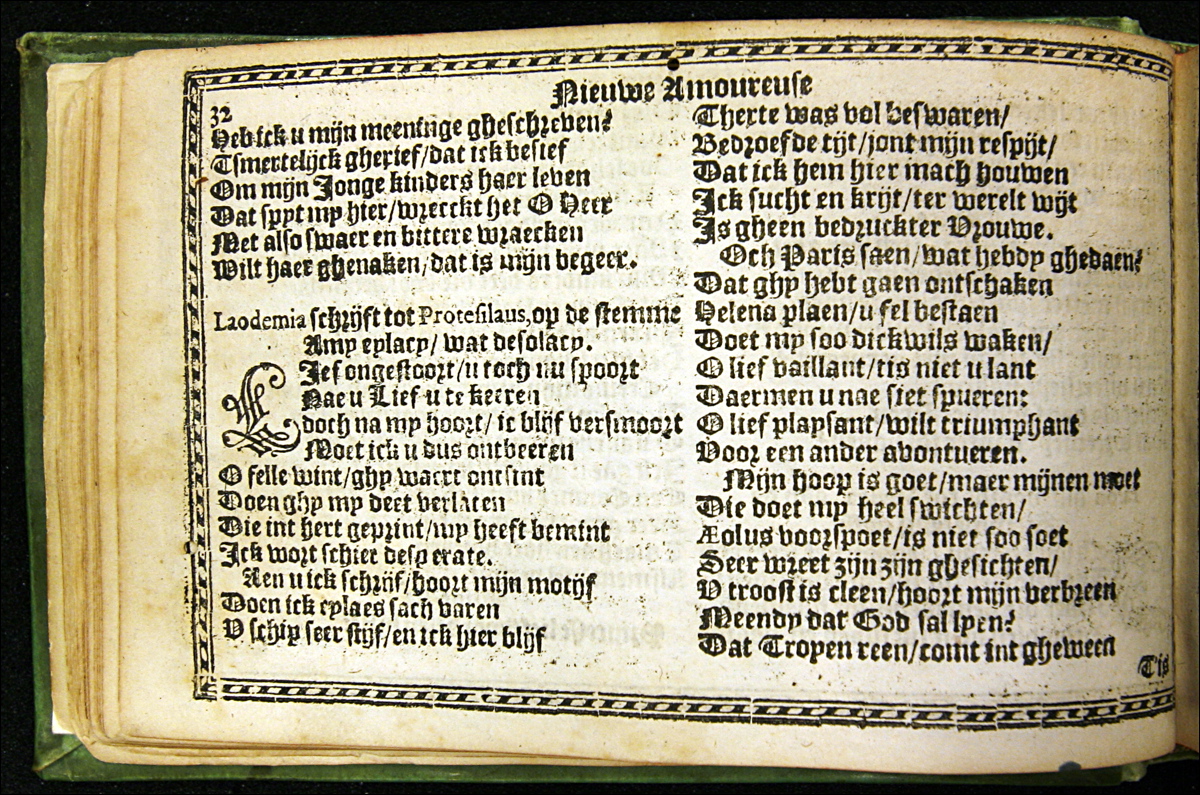 Nieuwe Amoureuse
32
Heb ick u mijn meeninge gheschreven?
Tsmertelijck gherief/dat ick besief
Om mijn Jonge kinders haer leven
Dat spyt my hier/wreeckt het O Heer
Met also swaer en bittere wraecken
Wilt haer ghenaken/dat is mijn begeer.
Laodemia schrijft tot Protesilaus, op de stemme
Amy eylacy/ wat desolacy.
Lief ongestoort/u toch nu spoort
Nae u Lief u te keeren
doch na my hoort/ ic blijf versmoort
Moet ick u dus ontbeeren
O felle wint/ghy waert ontsint
Doen ghy my deet verlaten
Die int hert geprint/my heeft bemint
Ick wort schier desperate.
Aen u ick schrijf/hoort mijn motijf
Doen ick eylaes sach varen
V schip seer stijf/en ick hier blijf
Therte was vol beswaren/
Bedroefde tijt/jont mijn respijt/
Dat ick hem hier mach houwen
Ick sucht en krijt/ter werelt wijt
Is gheen bedruckter Vrouwe.
Och Paris saen/wat hebdy ghedaen?
Dat ghy hebt gaen ontschaken
Helena plaen/u fel bestaen
Doet my soo dickwils waken/
O lief vaillant/tis niet u lant
Daermen u nae siet spueren:
O lief playsant/wilt triumphant
Voor een ander avontueren.
Mijn hoop is goet/maer mijnen moet
Die doet my heel swichten/
Æolus voorspoet/is niet soo soet
Seer wreet zijn zijn ghesichten/
V troost is cleen/hoort mijn verbreen
Meendy dat God sal lyen?
Dat Tropen reen/comt int gheween
T'is